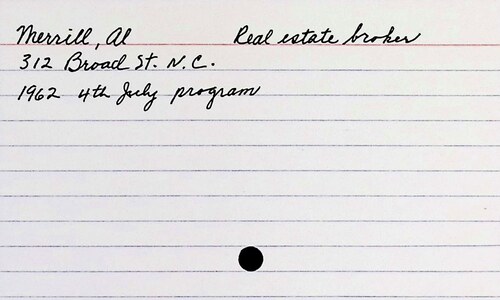 Merrill, Al Real estate broker
312 Broad St. N.C.
1962 4th July program